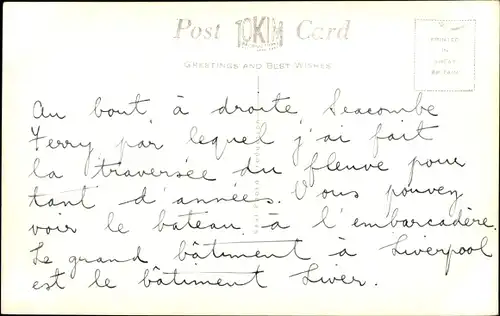 Post TOKIM Card
GREETINGS AND BEST WISHES
PRINTED
IN
GREAT
BRITAIN
Au bout, à droite, Seacombe
Ferry par lequel j'ai fait
la traversée du fleuve pour
tant d'années. Vous pouvez
voir le bateau à l'embarcadère.
Le grand bâtiment à Liverpool
est le bâtiment Liver.